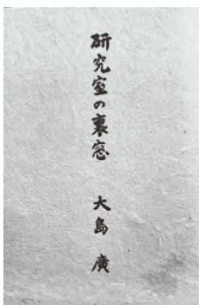 研究室の裏窓　大島廣